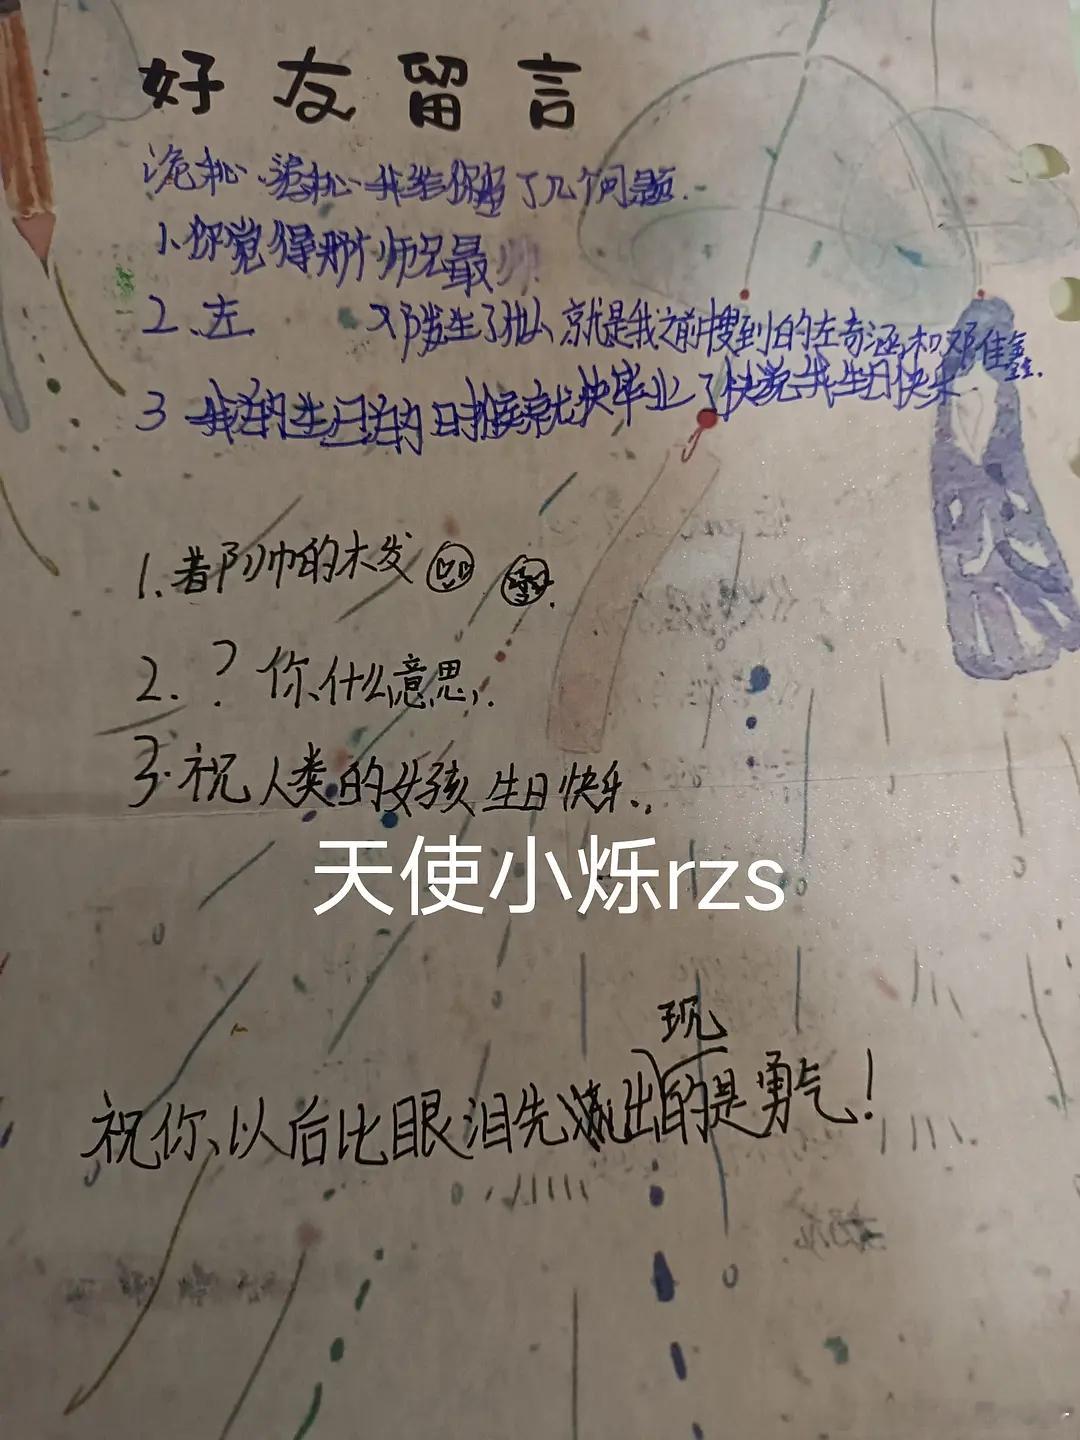 好友留言
我给你留了几个问题.
1、你觉得那个师兄最帅
2、左 邓发生了什么 就是我之前搜到的左奇涵和邓佳鑫.
3 我的生日的时候就快毕业了快祝我生日快乐
1.着阝帅的木发
2. ? 你什么意思.
3. 祝人类的女孩生日快乐.
天使小烁rzs
现
祝你以后比眼泪先流出的是勇气!